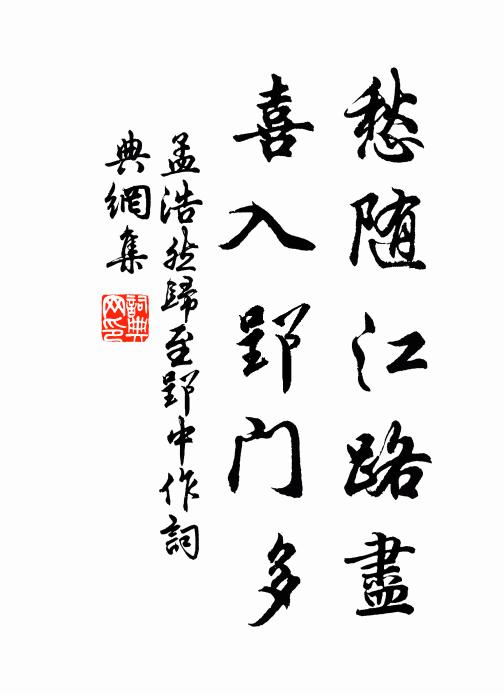 愁随江路盡
喜入郢門多
孟浩然歸至郢中作詞
典網集
詞典
网印